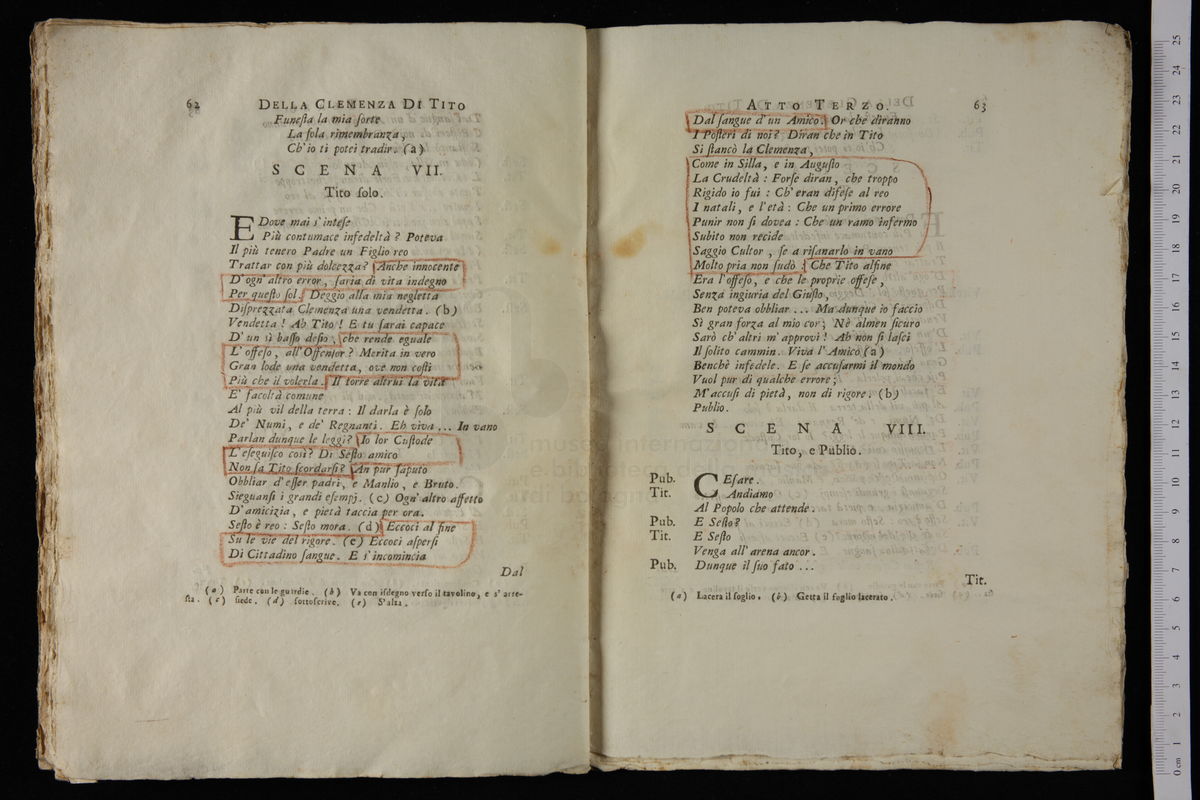 62 DELLA CLEMENZA DI TITO
Funeſta la mia ſorte
La ſola rimembranza,
Ch'io ti potei tradir. (a)
SCENA VII.
Tito ſolo.
E Dove mai s'inteſe
Più contumace infedeltà? Poteva
Il più tenero Padre un Figlio reo
Trattar con più dolcezza? Anche innocente
D'ogn'altro error, ſaria di vita indegno
Per queſto ſol. Deggio alla mia negletta
Diſprezzata Clemenza una vendetta. (b)
Vendetta! Ah Tito! E tu ſarai capace
D'un sì baſſo deſio, che rende eguale
L'offeſo, all'Offenſor? Merita in vero
Gran lode una vendetta, ove non coſti
Più che il volerla. Il torre altrui la vita
E' facoltà comune
Al più vil della terra: Il darla è ſolo
De' Numi, e de' Regnanti. Eh viva... In vano
Parlan dunque le leggi? Io lor Cuſtode
L'eſeguiſco così? Di Seſto amico
Non ſa Tito ſcordarſi? An pur ſaputo
Obbliar d'eſſer padri, e Manlio, e Bruto.
Sieguanſi i grandi eſempj. (c) Ogn'altro affetto
D'amicizia, e pietà taccia per ora.
Seſto è reo: Seſto mora. (d) Eccoci al fine
Su le vie del rigore. (e) Eccoci aſperſi
Di Cittadino ſangue. E s'incomincia
Dal
(a) Parte con le guardie. (b) Va con iſdegno verſo il tavolino, e s'arre-
ſta. (c) ſiede. (d) ſottoſcrive. (e) S'alza.
ATTO TERZO. 63
Dal ſangue d'un Amico. Or che diranno
I Poſteri di noi? Diran che in Tito
Si ſtancò la Clemenza,
Come in Silla, e in Auguſto
La Crudeltà: Forſe diran, che troppo
Rigido io fui: Ch'eran difeſe al reo
I natali, e l'età: Che un primo errore
Punir non ſi dovea: Che un ramo infermo
Subito non recide
Saggio Cultor, ſe a riſanarlo in vano
Molto pria non ſudò. Che Tito alfine
Era l'offeſo, e che le proprie offeſe,
Senza ingiuria del Giuſto,
Ben poteva obbliar... Ma dunque io faccio
Sì gran forza al mio cor; Nè almen ſicuro
Sarò ch'altri m'approvi! Ah non ſi laſci
Il ſolito cammin. Viva l'Amico (a)
Benchè infedele. E ſe accuſarmi il mondo
Vuol pur di qualche errore;
M'accuſi di pietà, non di rigore. (b)
Publio.
SCENA VIII.
Tito, e Publio.
Pub. CEſare.
Tit. Andiamo
Al Popolo che attende.
Pub. E Seſto?
Tit. E Seſto
Venga all'arena ancor.
Pub. Dunque il ſuo fato...
Tit.
(a) Lacera il foglio. (b) Getta il foglio lacerato.